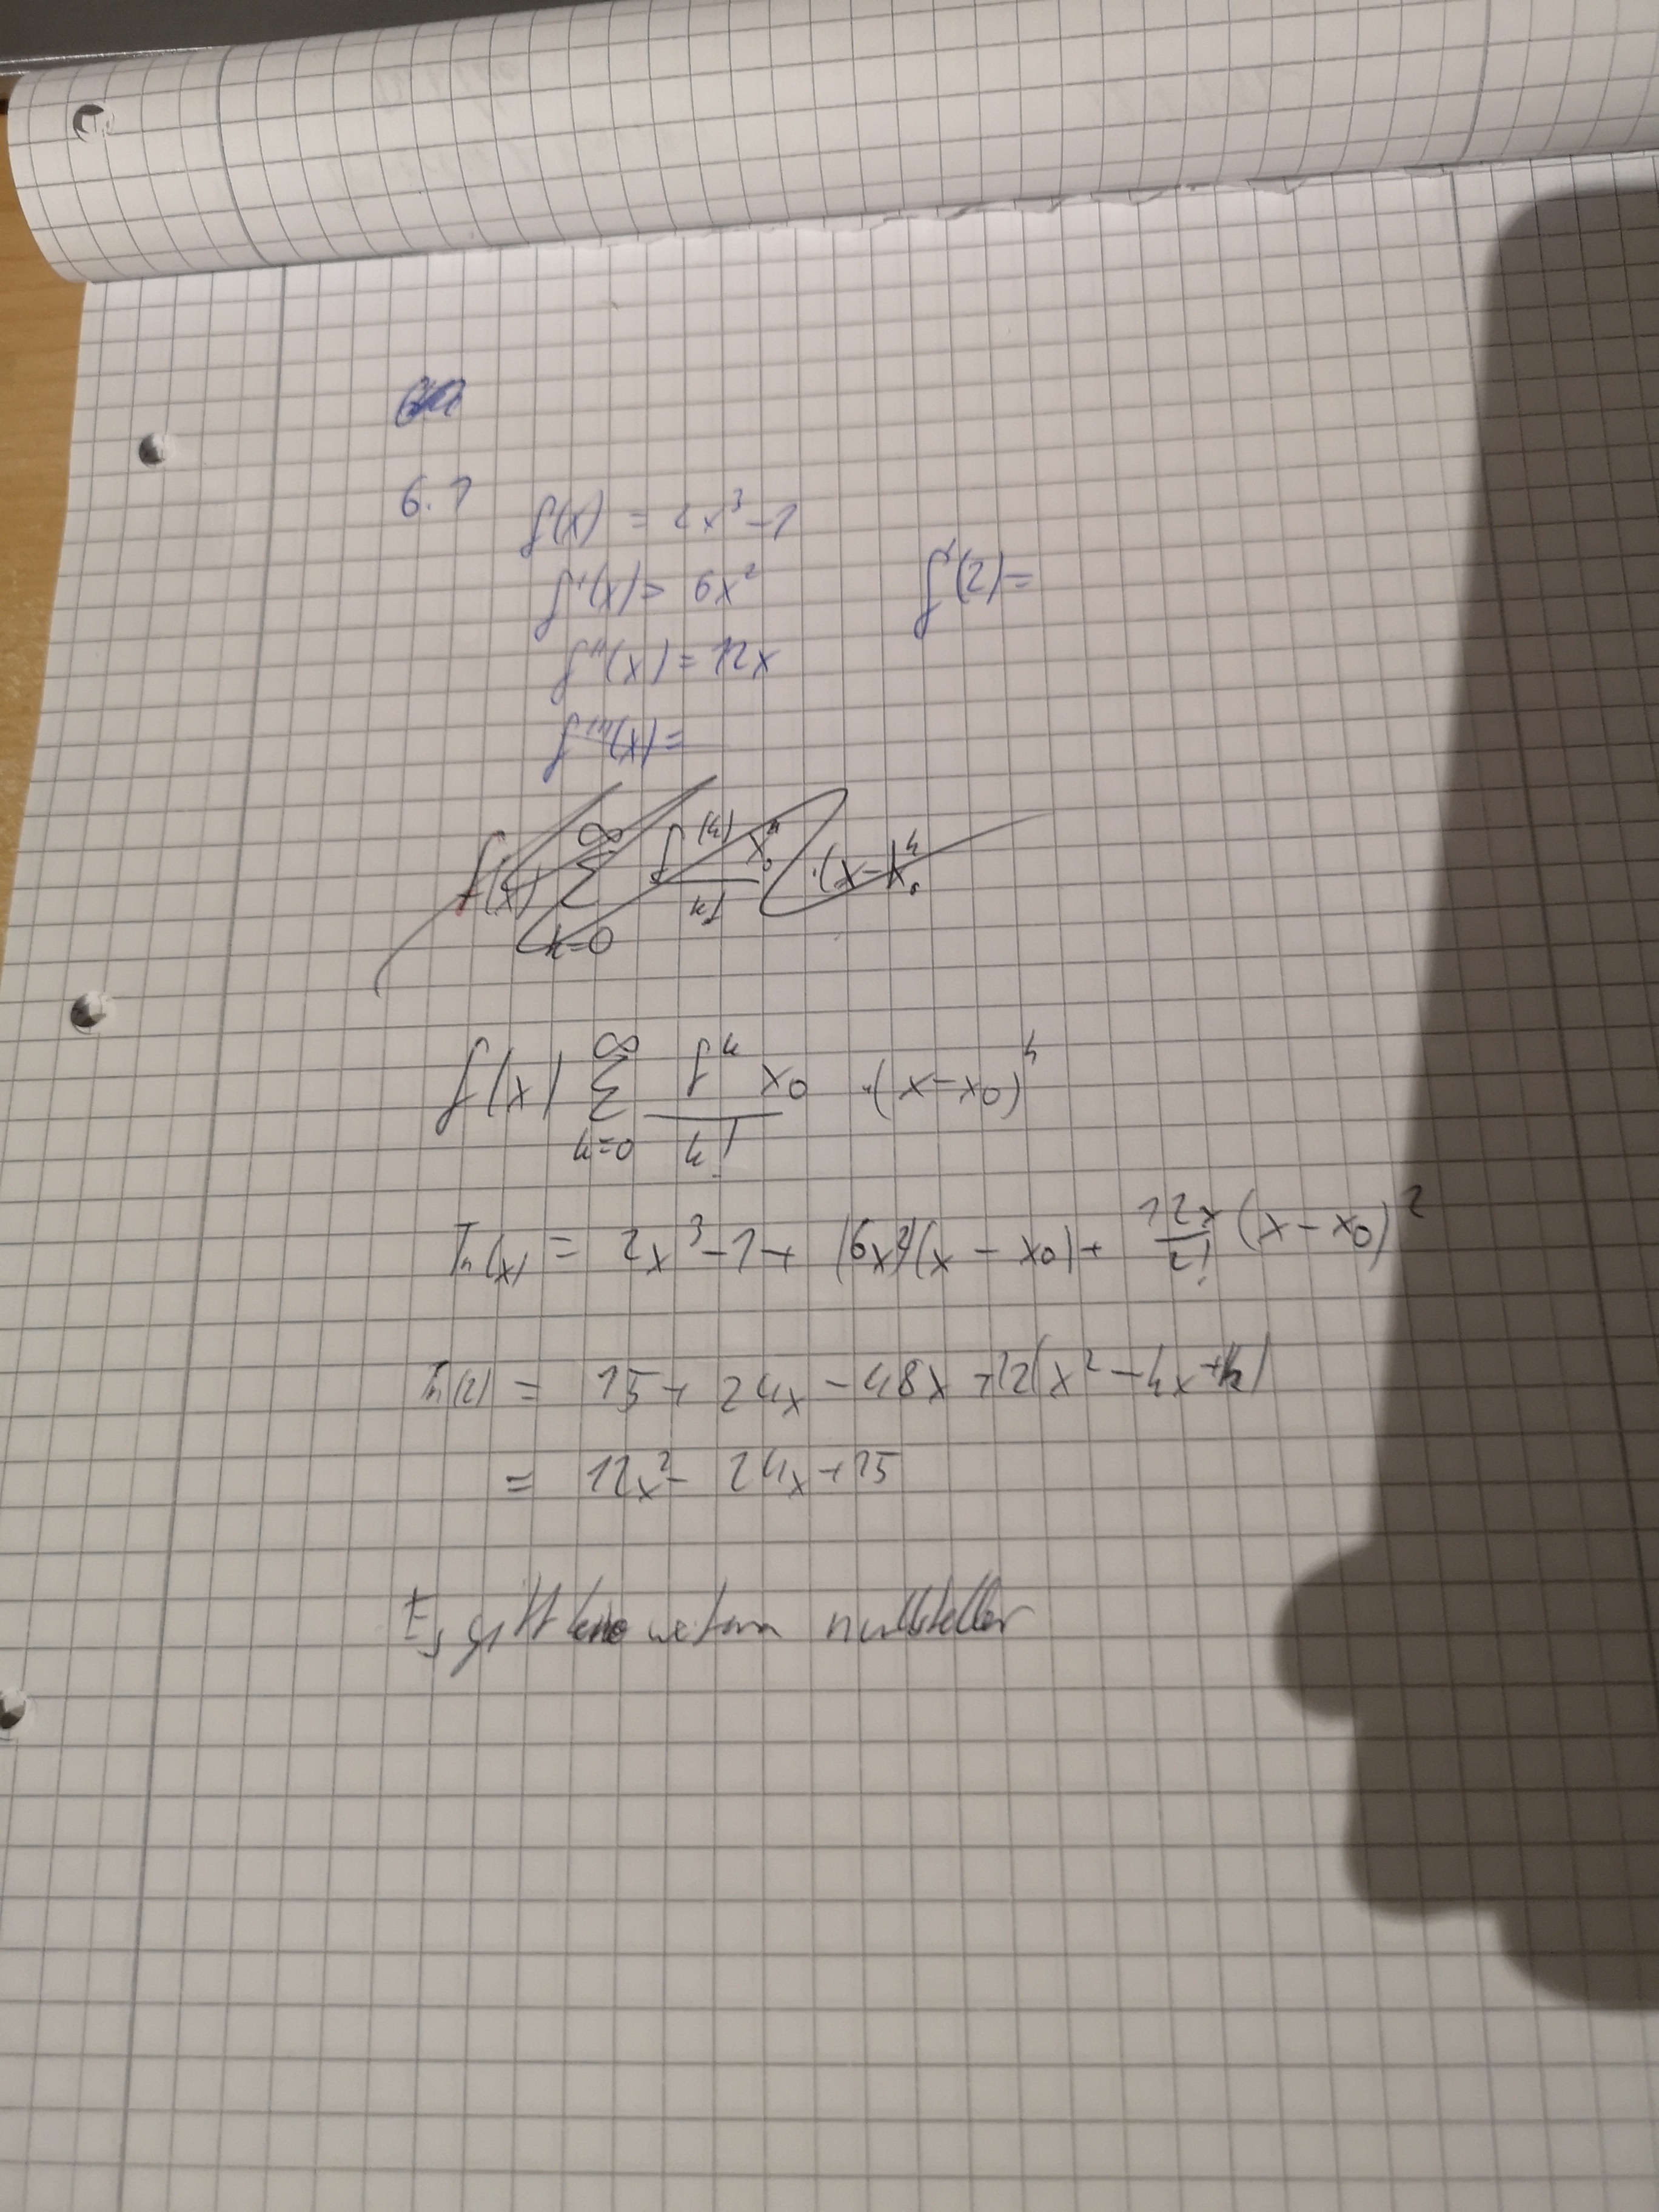 6.1 f(x) = 2x³-1
f'(x) = 6x² f'(2)=
f''(x) = 12x
f'''(x) =
f(x) ∞ Σ n=0 f⁽ⁿ⁾ x₀ / n! · (x-x₀)ⁿ
f(x) ∞ Σ n=0 fⁿ x₀ / n! · (x-x₀)ⁿ
Tn(x) = 2x³-1+ (6x²)(x-x₀)+ 12x/2! (x-x₀)²
Tn(2) = 15+24x-48x+12(x²-4x+4)
= 12x²-24x+15
Es gibt keine nullstellen